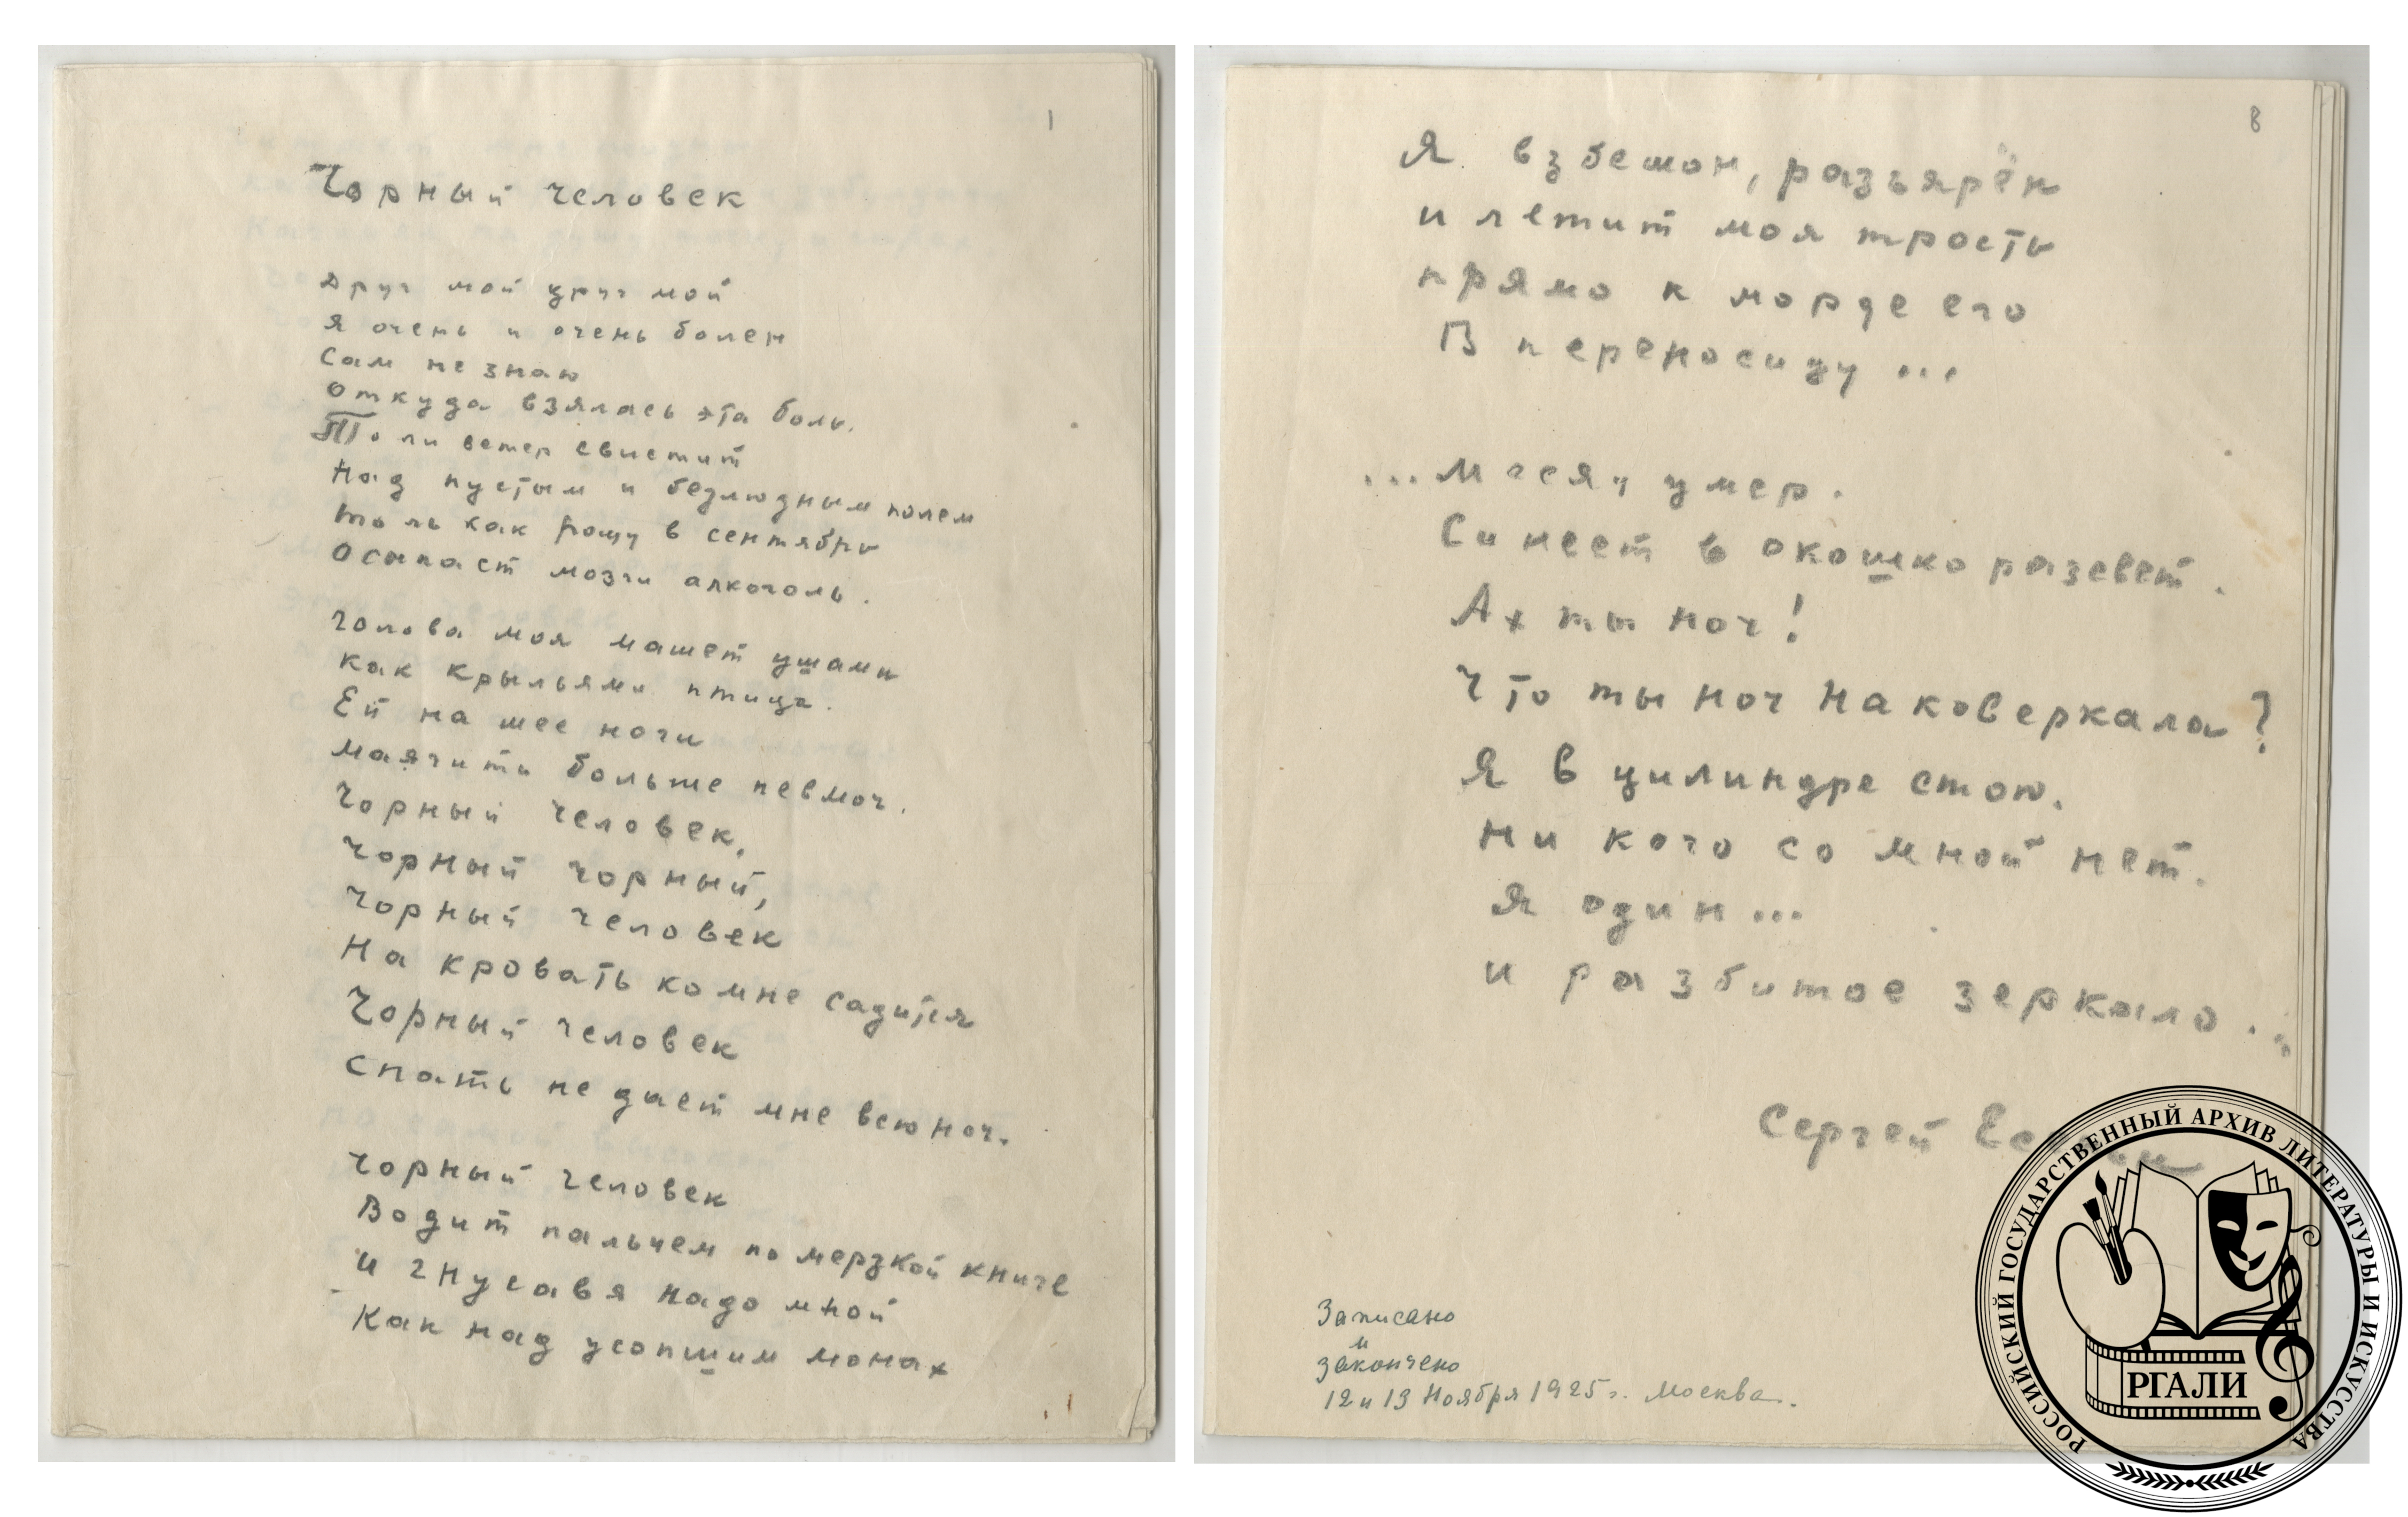 1
Чорный человек
Друг мой друг мой
Я очень и очень болен
Сам не знаю
Откуда взялась эта боль.
То ли ветер свистит
Над пустым и безлюдным полем
Толь как рощу в сентябрь
Осыпает мозги алкоголь.
Голова моя машет ушами
Как крыльями птица.
Ей на шее ночи
Маячить больше невмоч.
Чорный человек,
Чорный чорный,
Чорный человек
На кровать ко мне садится
Чорный человек
Спать не дает мне всю ноч.
Чорный человек
Водит пальцем по мерзкой книге
И гнусавя надо мной
Как над усопшим монах
8
Я взбешон, разъярён
и летит моя трость
прямо к морде его
В переносицу...
...Месяц умер.
Синеет в окошко разсвет.
Ах ты ноч!
Что ты ноч наковеркала?
Я в цилиндре стою.
Ни кого со мной нет.
Я один...
и разбитое зеркало...
Сергей
Записано
и
закончено
12 и 13 Ноября 1925 г. Москва.
РОССИЙСКИЙ ГОСУДАРСТВЕННЫЙ АРХИВ ЛИТЕРАТУРЫ И ИСКУССТВА
РГАЛИ